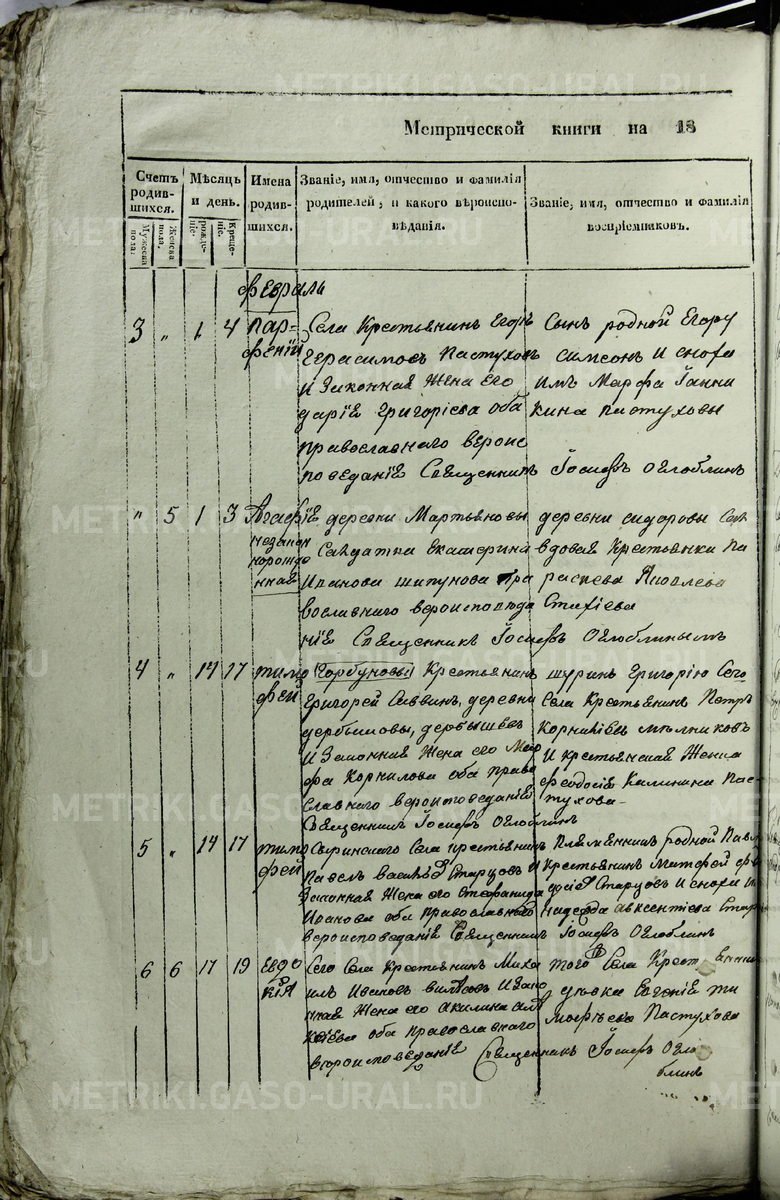 METRIKI.GASO-URAL.RU
Метрической книги на 18
Счетъ родив-шихся.
Мѣсяцъ и день.
Имена родив-шихся.
Званіе, имя, отчество и фамилія родителей, и какого вѣроиспо-вѣданія.
Званіе, имя, отчество и фамилія воспріемниковъ.
Мужеска пола.
Женска пола.
рожде-ніе.
Креще-ніе.
февраль
3 " 1 4 Пар-фений
Села Крестьянинъ Егоръ
Герасимовъ Пастуховъ
и Законная Жена его
дарiя григорiева оба
православнаго вероис
поведанiя Священникъ Iосифъ Оглоблинъ
Сынъ родной Егору
Симеонъ и сноха
имъ Марфа
кина пастуховы
" 5 1 3 Агафiя незаконнорожденная
деревни Мартьяновы
Салдатка Екатерина
Иванова шипунова пра
вославнаго вероисповеда
нiя Священникъ Iосифъ Оглоблинымъ
деревни сидоровы
вдовая Крестьянка Па
раскева Яковлева
4 " 14 17 тимофей
Горбуновы Крестьянинъ
григорей Саввинъ, деревни
и Законная Жена его Мар
фа Корнилова оба право
славнаго вероисповеданiя
Священникъ Iосифъ Оглоблинъ
шуринъ григорiю Сего
Села Крестьянинъ Петръ
Корниловъ мѣлниковъ
и крестьянская Женка
феодосiя Калинина Пас
тухова
5 " 14 17 тимофей
Сыринскаго Села крестьянинъ
Павелъ васильевъ Старцовъ и
Законная Жена его Стефанида
Иванова оба православнаго
вероисповеданiя Священникъ Iосифъ Оглоблинъ
Племянникъ родной Павлу
Крестьянинъ Матфей
Старцовъ и сноха
Надежда авксентiева
6 6 17 19 Евдокiя
Сего Села Крестьянинъ Миха
илъ Ивановъ и Закон
ная Жена его акилина
оба православнаго
вероисповеданiя Священникъ Iосифъ Огло
блинъ
того Села Крест
девка Евгенiя ти
мофеева Пастухова